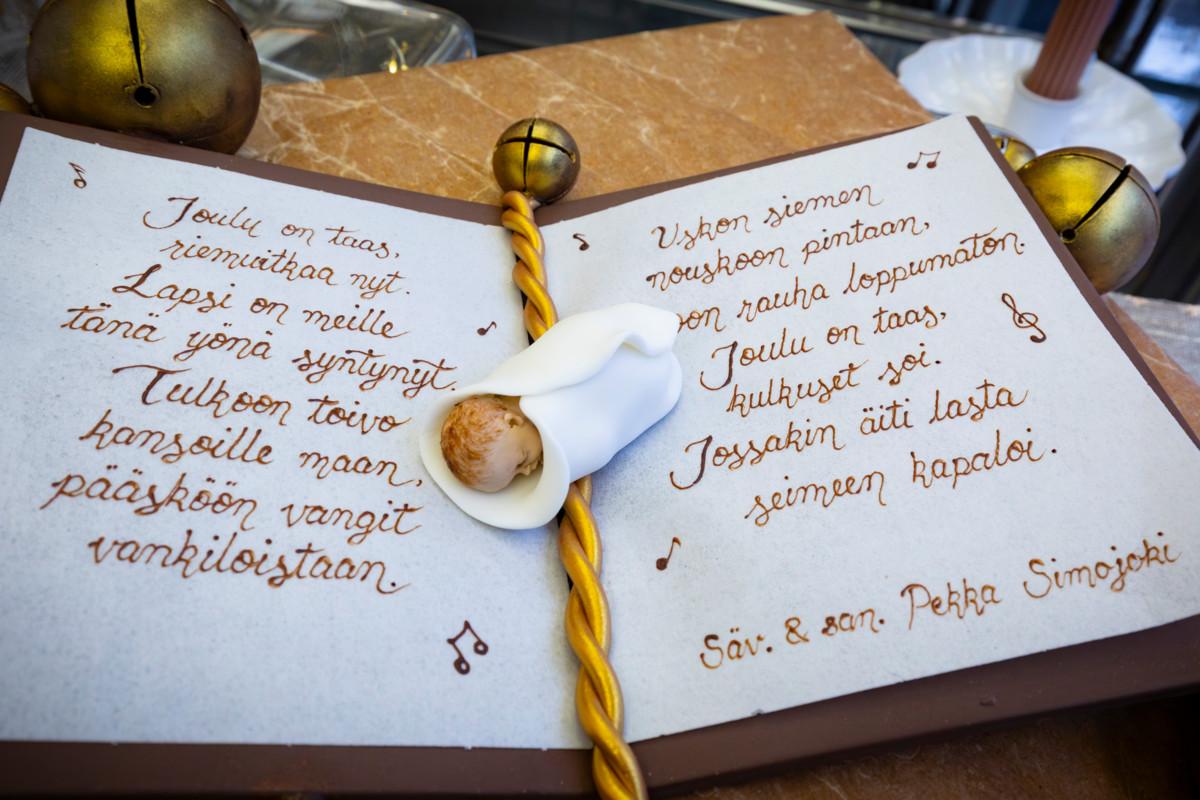 Joulu on taas,
riemuitkaa nyt.
Lapsi on meille
tänä yönä syntynyt.
Tulkoon toivo
kansoille maan,
pääsköön vangit
vankiloistaan.
Uskon siemen
nouskoon pintaan,
rauha loppumaton.
Joulu on taas,
kulkuset soi.
Jossakin äiti lasta
seimeen kapaloi.
Säv. & san. Pekka Simojoki